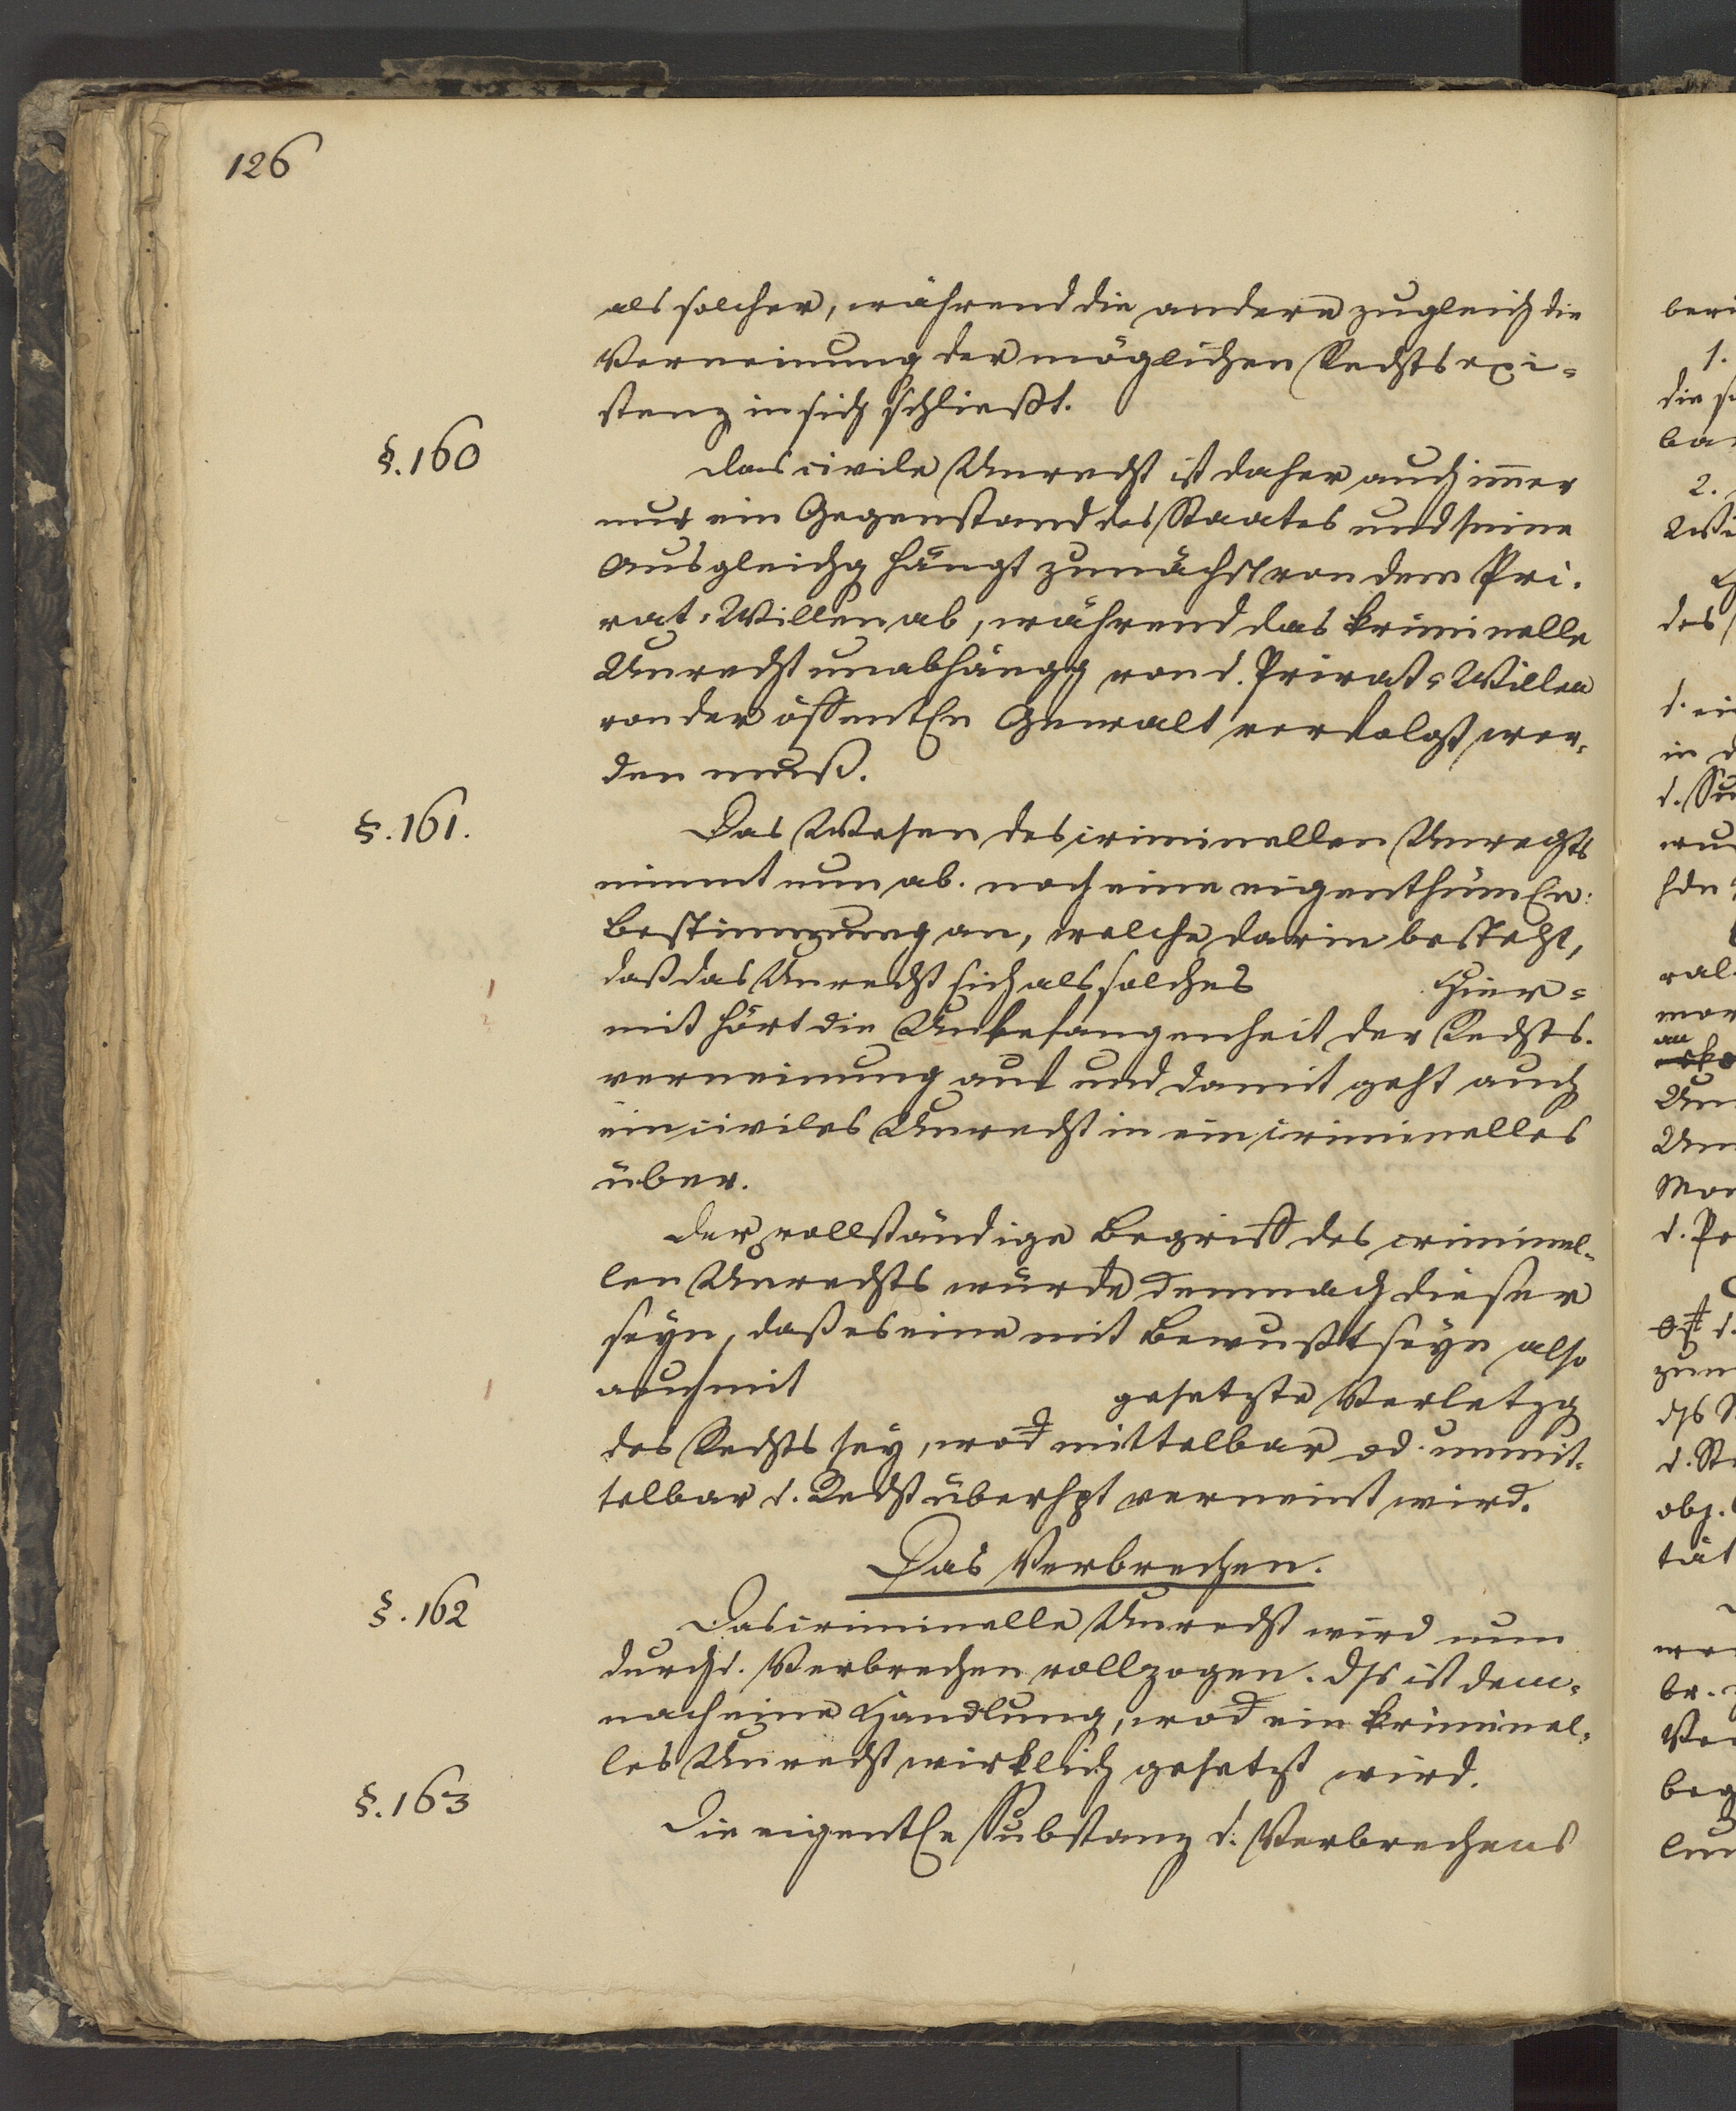 126
als solcher, während die andere zugleich die
Verneinung der möglichen Rechtsexi-
stenz in sich schließt.
§. 160
Das civile Unrecht ist daher auch immer
nur ein Gegenstand des Staates und seine
Ausgleichg hängt zunächst von dem Pri-
vat-Willen ab, während das kriminelle
Unrecht unabhängig von d. Privat-Willen
von der öffentlichen Gewalt verfolgt wer-
den muß.
§. 161.
Das Wesen des criminellen Unrechts
nimmt nun ab. noch eine eigenthümliche
Bestimmung an, welche darin besteht,
daß das Unrecht sich als solches Hier-
mit hört die Unbefangenheit der Rechts-
verneinung auf und damit geht auch
ein civiles Unrecht in ein criminelles
über.
Der vollständige Begriff des criminel-
len Unrechts würde demnach dieser
seyn, daß es eine mit Bewußtseyn also
auch mit gesetzte Verletzg
des Rechts sey, wod mittelbar od. unmit-
telbar d. Recht überhpt verneint wird.
Das Verbrechen.
§. 162
Das criminelle Unrecht wird nun
durch d. Verbrechen vollzogen. Dss ist dem-
nach eine Handlung, wod ein kriminel-
les Unrecht wirklich gesetzt wird.
§. 163
Die eigentliche Substanz d. Verbrechens